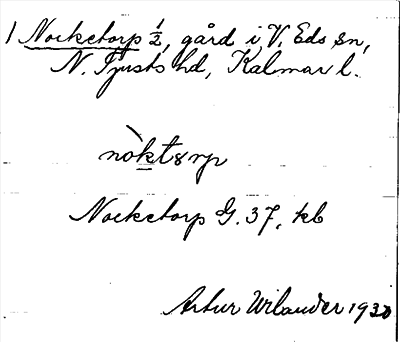 1 Nocketorp ½, gård i V. Eds sn,
N. Tjusts hd, Kalmar l.
nòktsrp
Nocketorp G. 37, kb
Artur Wilander 1930